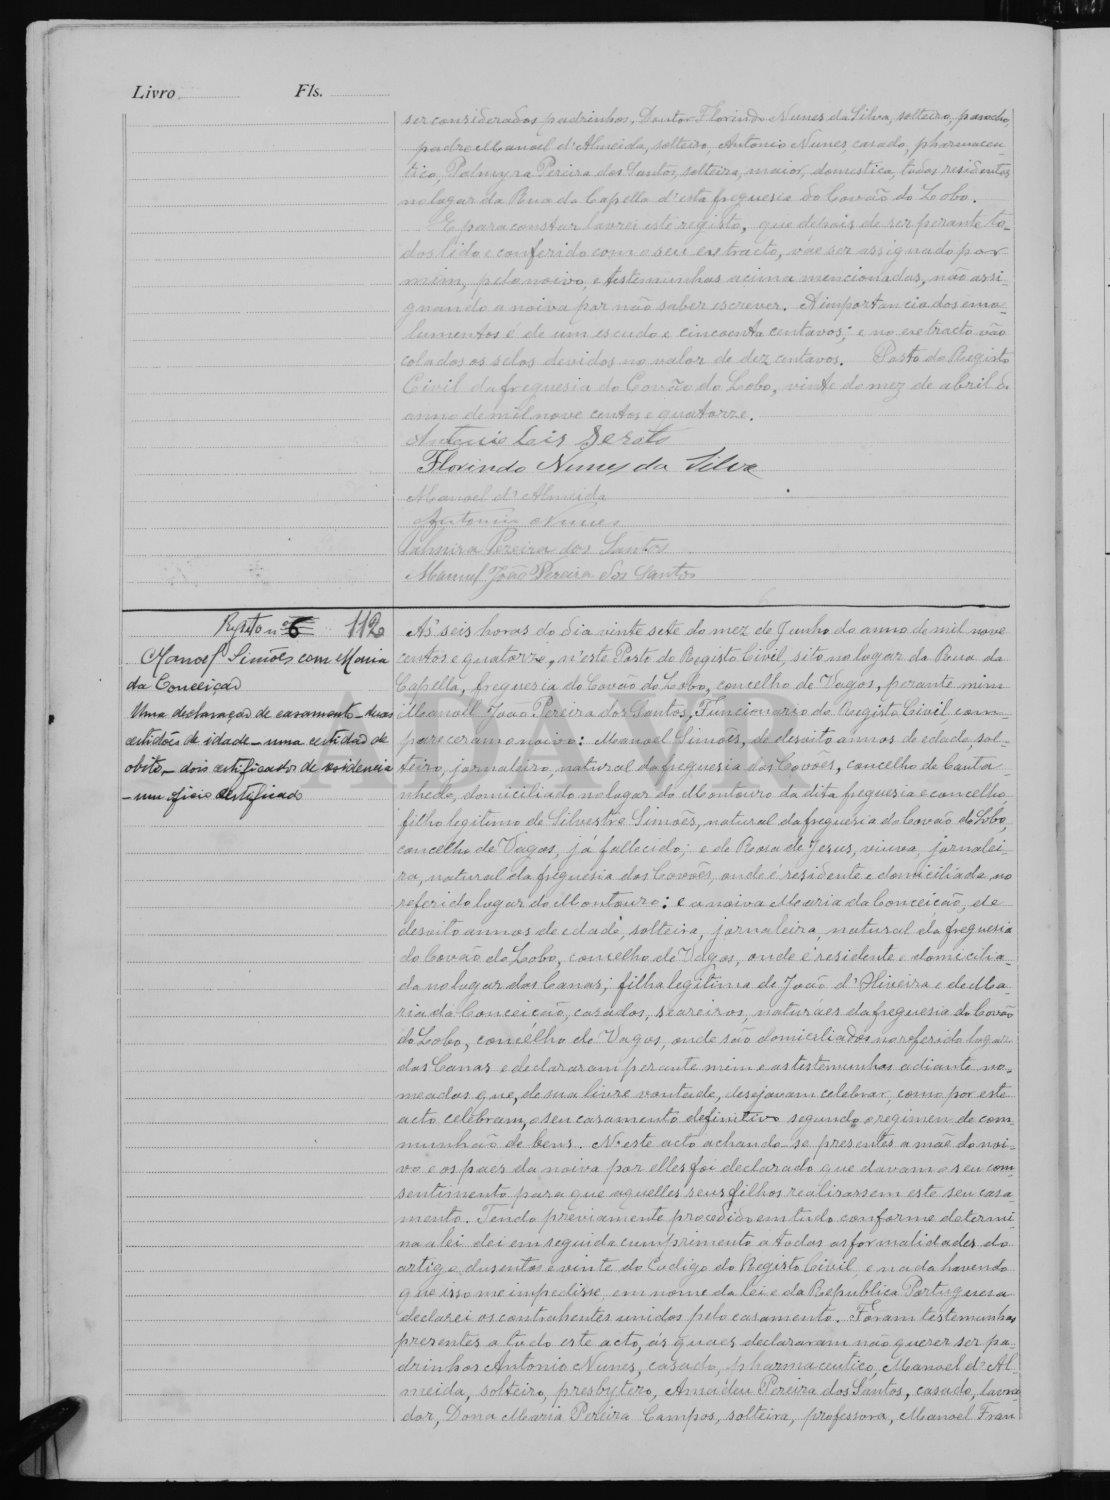 Livro Fls.
ser considerados padrinhos, Doutor Florindo Nunes da Silva, solteiro, parocho,
padre Manoel d'Almeida, solteiro, Antonio Nunes, casado, pharmaceu-
tico, Palmyra Pereira dos Santos, solteira, maior, domestica, todos residentes
no lugar da Rua da Capella d'esta freguesia do Covão do Lobo.
E para constar lavrei este registo, que depois de ser perante to-
dos lido e conferido com o seu extracto, vae ser assignado por
mim, pelo noivo, e testemunhas acima mencionadas, não assi-
gnando a noiva por não saber escrever. A importancia dos emo-
lumentos é de um escudo e cincoenta centavos; e no extracto vão
colados os selos devidos no valor de dez centavos. Posto do Registo
Civil da freguesia do Covão do Lobo, vinte do mez de abril do
anno de mil nove centos e quatorze.
Antonio
Florindo Nunes da Silva
Manoel d'Almeida
Antonio Nunes
Palmira Pereira dos Santos
Manuel João Pereira dos Santos
Registo nº 6 112
Manoel Simões com Maria
da Conceição
Uma declaração de casamento - duas
certidões de idade - uma certidão de
obito - dois certificados de residencia
- um oficio certificado
Ás seis horas do dia vinte sete do mez de Junho do anno de mil nove
centos e quatorze, n'este Posto do Registo Civil, sito no lugar da Rua da
Capella, freguesia do Covão do Lobo, concelho de Vagos, perante mim
Manoel João Pereira dos Santos, Funcionario do Registo Civil com-
pareceram o noivo: Manoel Simões, de desoito annos de edade, sol-
teiro, jornaleiro, natural da freguesia dos Covões, concelho de Canta-
nhede, domiciliado no lugar do Montouro da dita freguesia e concelho,
filho legitimo de Silvestre Simões, natural da freguesia do Covão do Lobo,
concelho de Vagos, já fallecido; e de Rosa de Jesus, viuva, jornalei-
ra, natural da freguesia dos Covões, onde é residente e domiciliada no
referido lugar do Montouro: e a noiva Maria da Conceição, de
desoito annos de edade, solteira, jornaleira, natural da freguesia
do Covão do Lobo, concelho de Vagos, onde é residente e domicilia-
da no lugar das Canas; filha legitima de João d'Oliveira e de Ma-
ria da Conceição, casados, seareiros, naturaes da freguesia do Covão
do Lobo, concelho de Vagos, onde são domiciliados no referido lugar
das Canas e declararam perante mim e as testemunhas adiante no-
meadas que, de sua livre vontade, desejavam celebrar, como por este
acto celebram, o seu casamento definitivo segundo o regimen de com-
munhão de bens. N'este acto achando-se presentes a mãe do noi-
vo e os paes da noiva por elles foi declarado que davam o seu con-
sentimento para que aquelles seus filhos realizassem este seu casa-
mento. Tendo previamente procedido em tudo conforme determi-
na a lei dei em seguida cumprimento a todas as formalidades do
artigo dusentos e vinte do Codigo do Registo Civil, e nada havendo
que isso me impedisse, em nome da lei e da Republica Portuguesa
declarei os contrahentes unidos pelo casamento. Foram testemunhas
presentes a todo este acto, ás quaes declararam não querer ser pa-
drinhos Antonio Nunes, casado, pharmaceutico, Manoel d'Al-
meida, solteiro, presbytero, Amadeu Pereira dos Santos, casado, lavra-
dor, Dona Maria Pereira Campos, solteira, professora, Manoel Fran